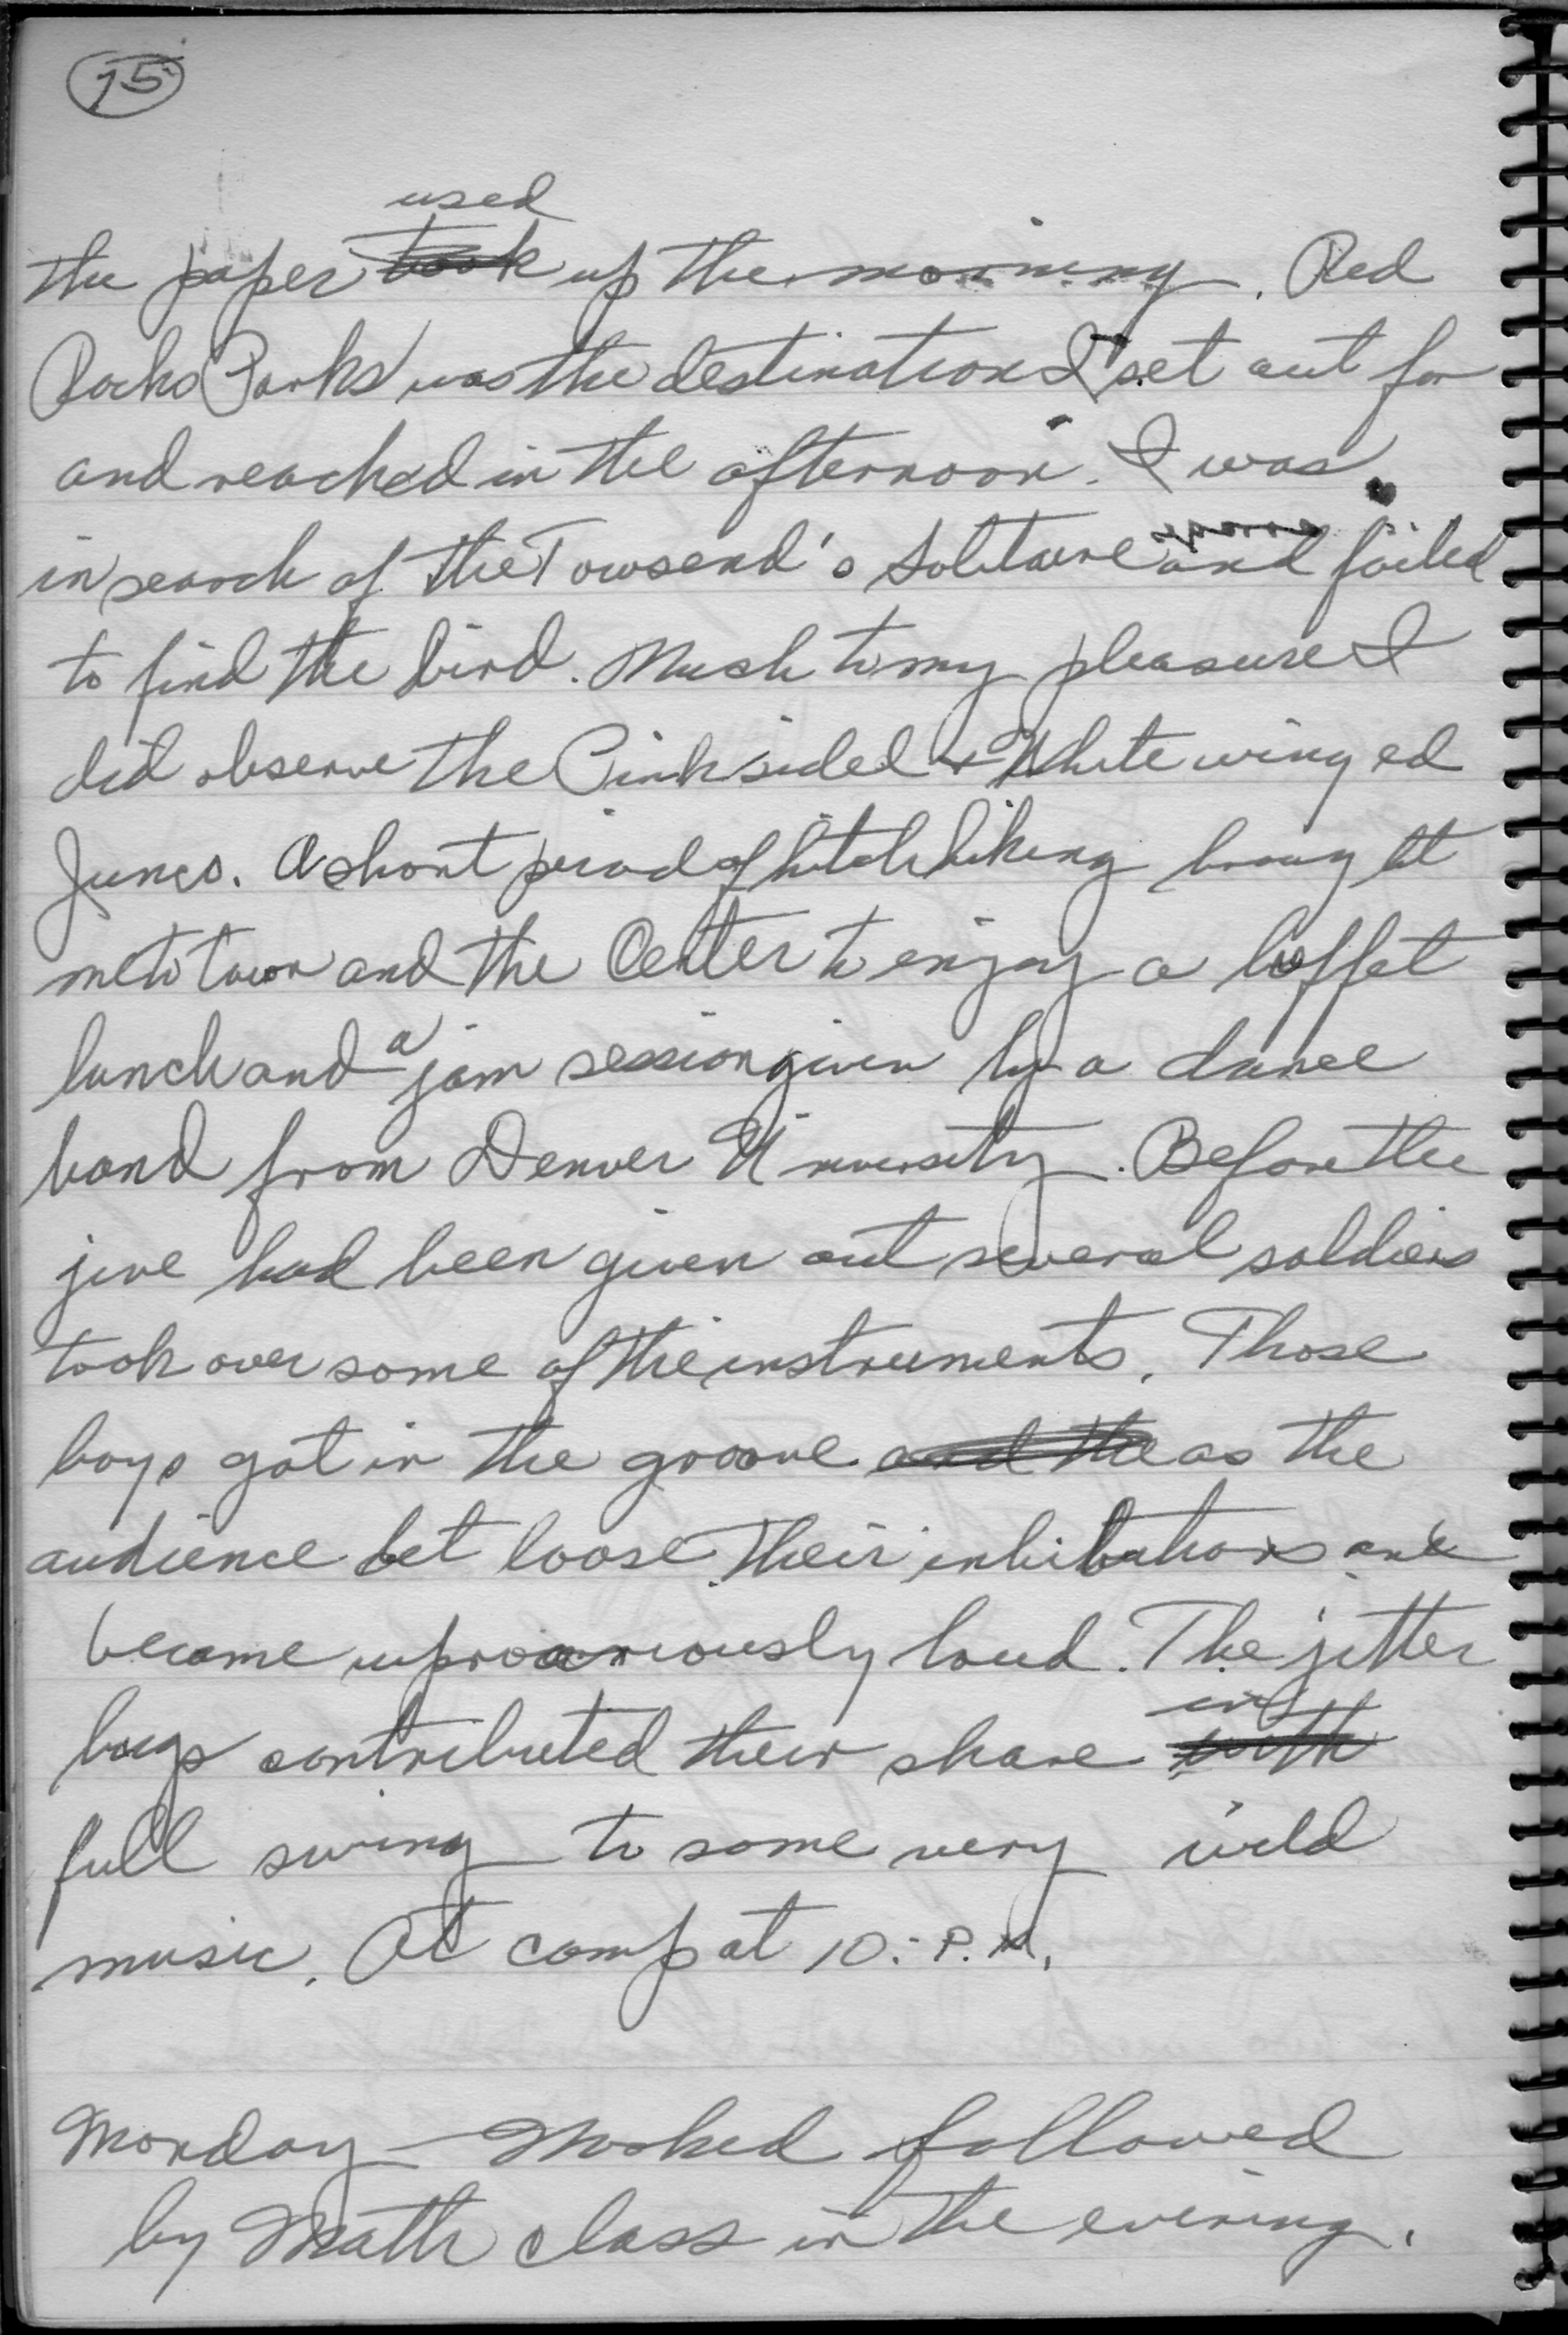 75
used
the paper took up the morning. Red
Rocks Parks was the destination I set out for
and reached in the afternoon. I was
in search of the Towsend's Solitaire and failed
to find the bird. Much to my pleasure I
did observe the Pink sided & White winged
Junco. A short period of hitch hiking brought
me to town and the Center to enjoy a buffet
lunch and a jam session given by a dance
band from Denver University. Before the
jive had been given out several soldiers
took over some of the instruments. Those
boys got in the groove and the as the
audience let loose their inhibitions and
became uproariously loud. The jitter
in
bugs contributed their share with
full swing to some very wild
music. At camp at 10:- P.M.
Monday - Worked followed
by Math class in the evening.